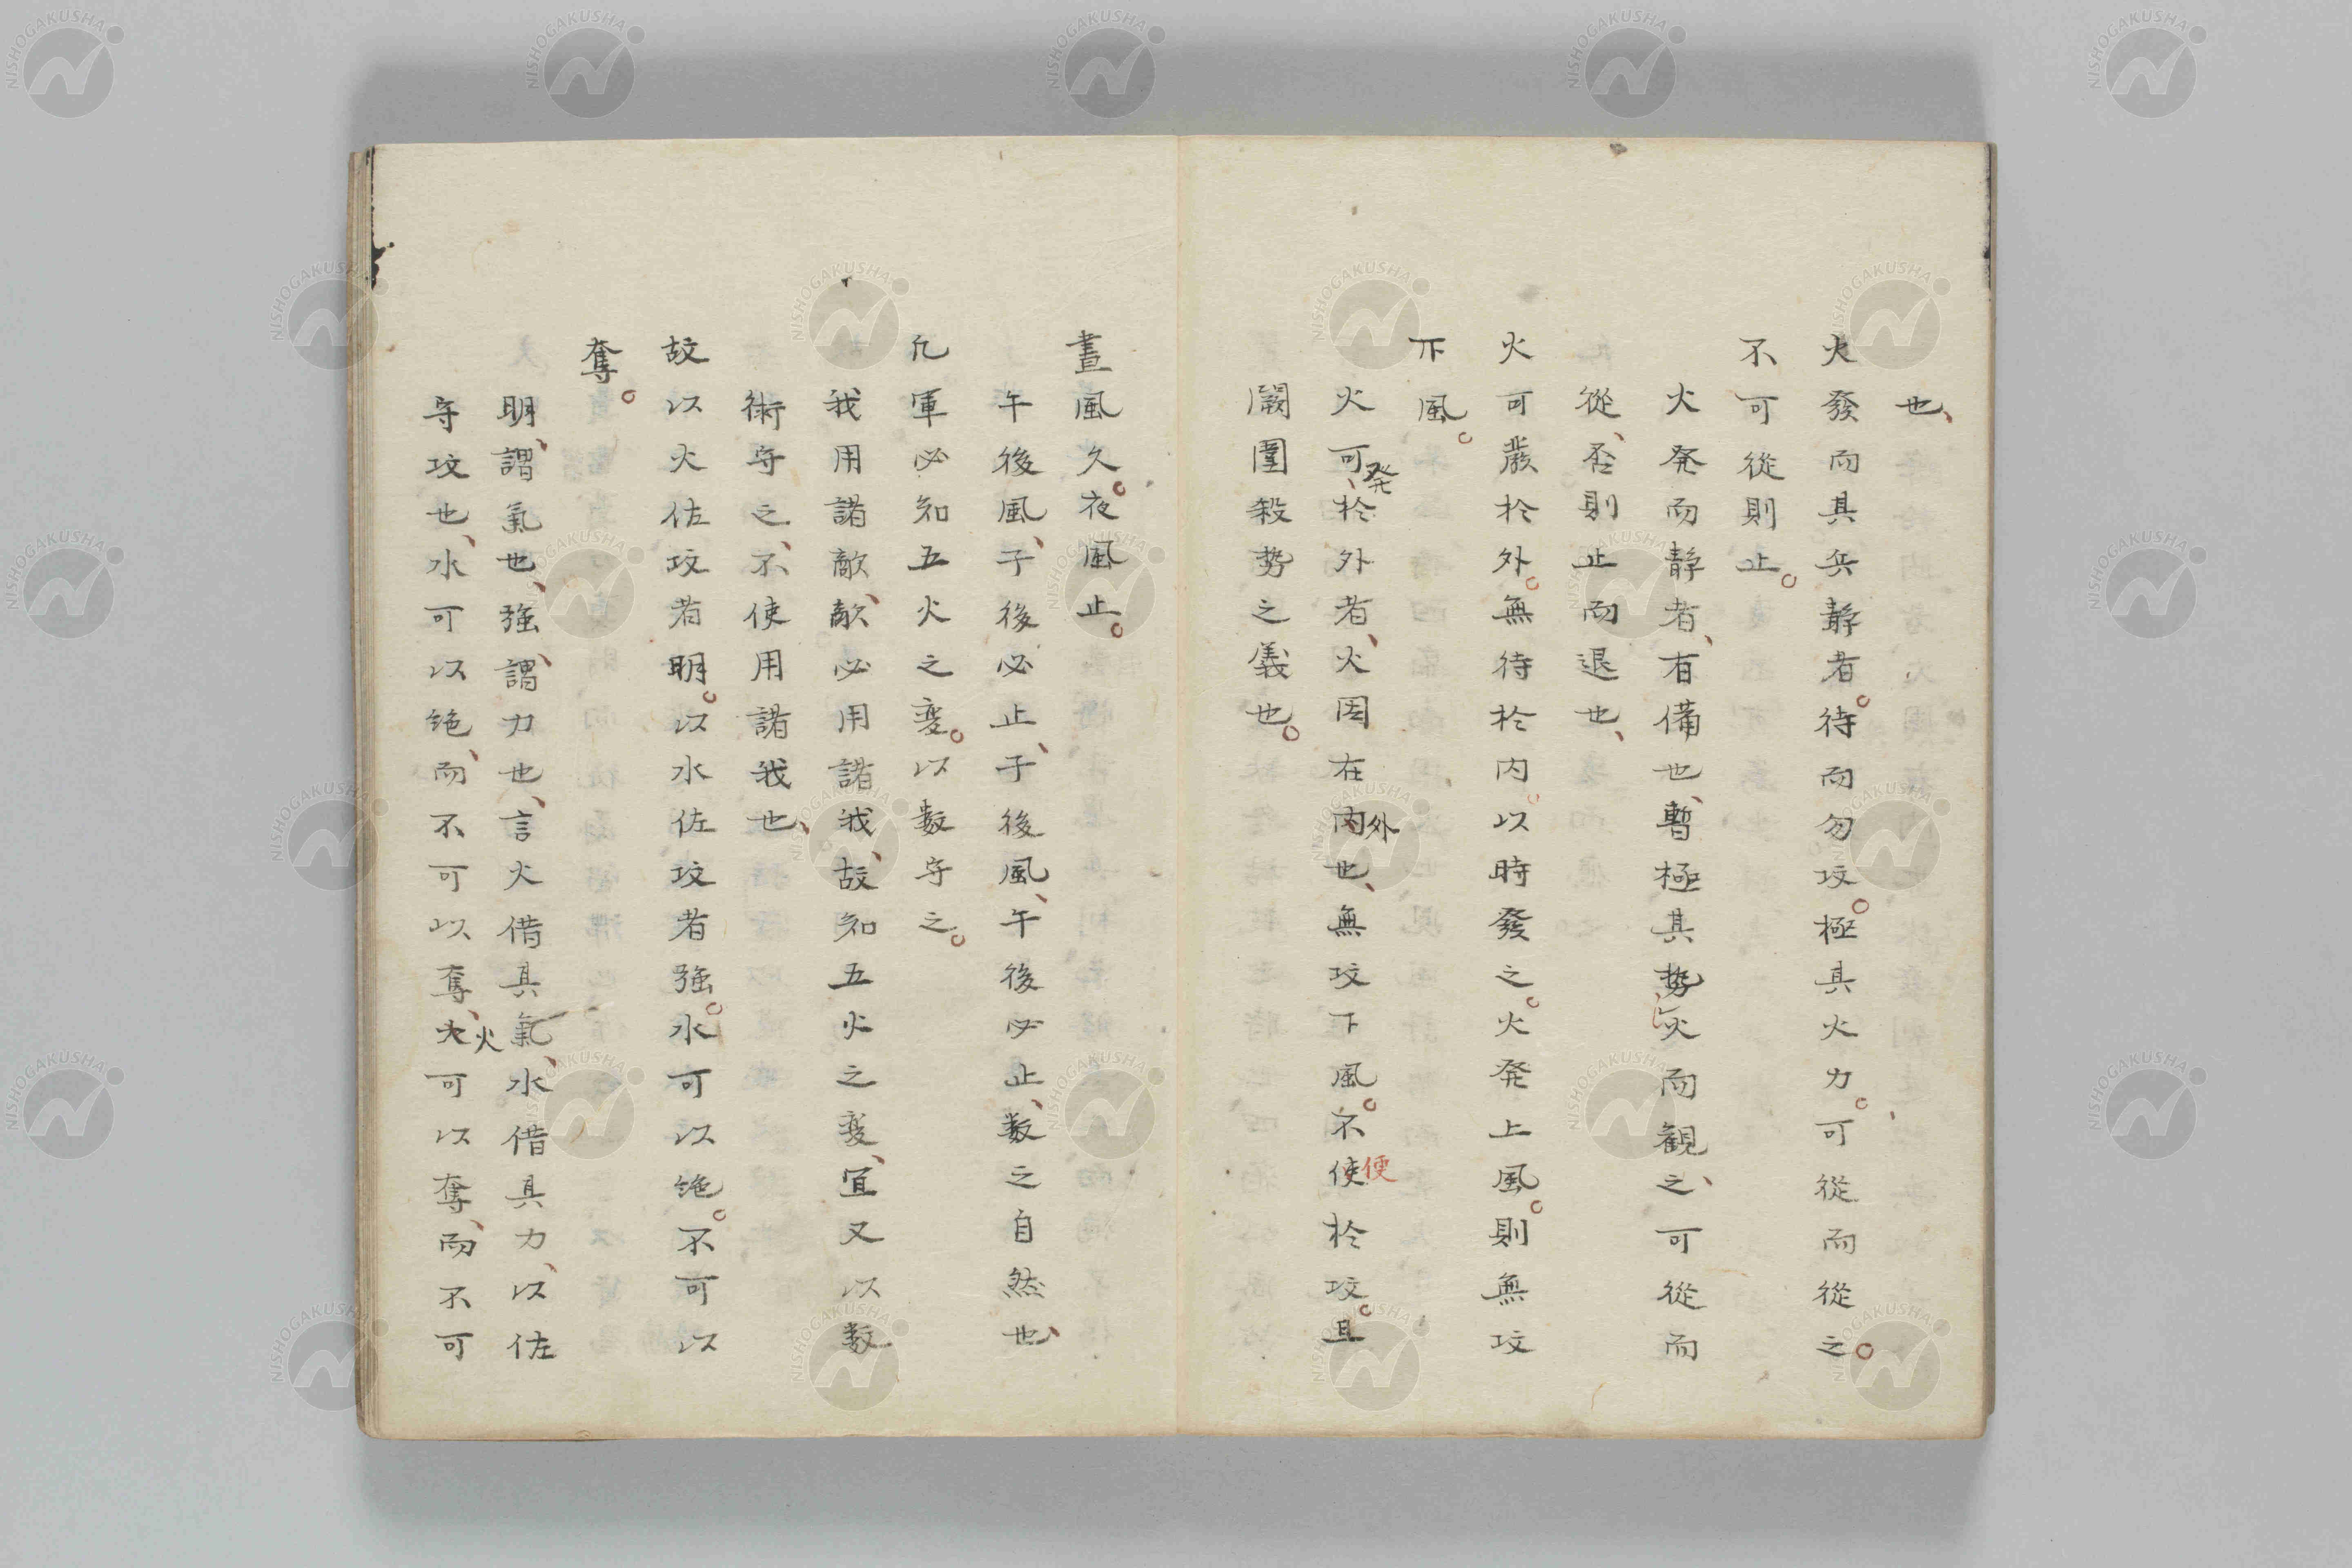 也、
火發而其兵靜者。待而勿攻。極其火力。可從而從之。
不可從則止。
火発而静者、有備也、暫極其勢火而観之、可從而
從、否則止而退也、
火可發於外。無待於内。以時發之。火発上風。則無攻
下風。
火可発、於外者、火因在内外也、無攻下風。不使便於攻。且
闕圍殺勢之義也。
晝風久。夜風止。
午後風、子後必止、子後風、午後必止、数之自然也、
凡軍必知五火之変。以数守之。
我用諸敵、敵必用諸我、故知五火之変、宜又以数
術守之、不使用諸我也、
故以火佐攻者明。以水佐攻者強。水可以绝。不可以
奪。
明、謂氣也、强、謂力也、言火借其氣、水借其力、以佐
守攻也、水可以绝、而不可以奪、火火可以奪、而不可